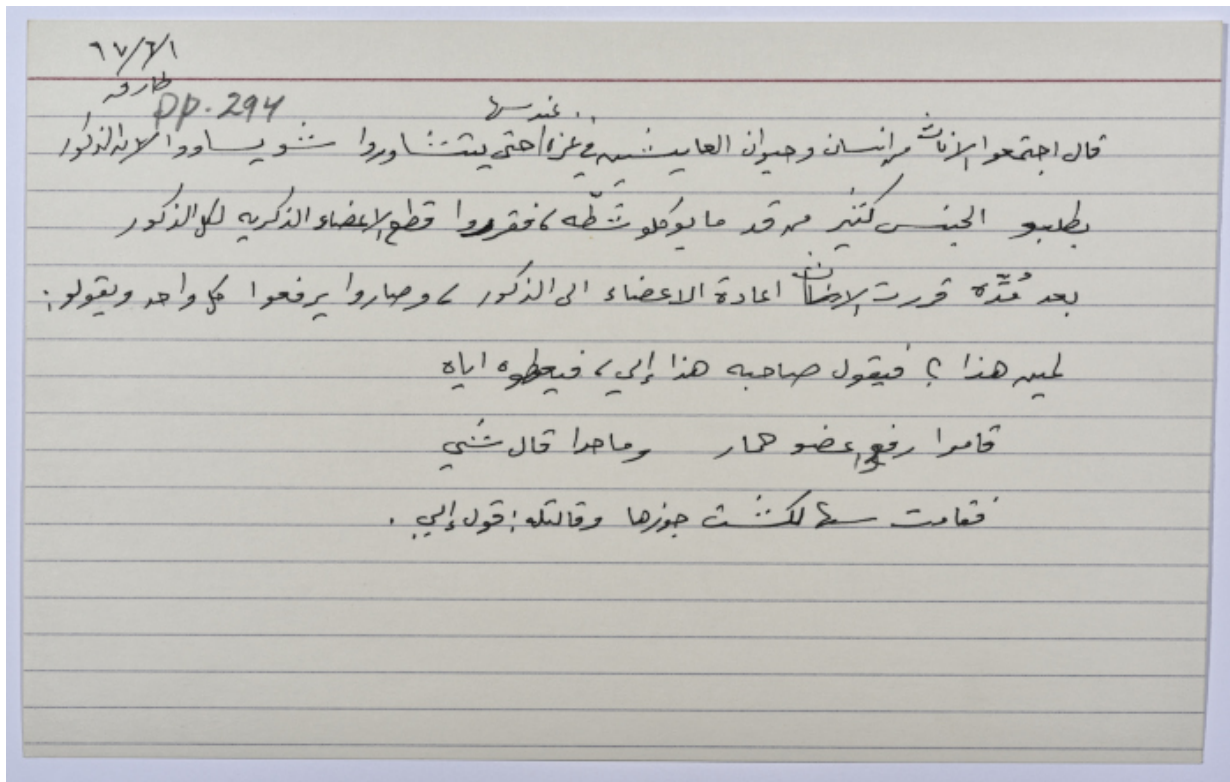 ٦٧/٦/١
طارق
pp. 294
عند سها
قال اجتمعوا الاناث من انسان وحيوان العايشين في غزه حتى يتشاوروا شو يساووا لانه الذكور
بطلبو الجنس كتير من قد ما يوكلو شطّه، فقرروا قطع الاعضاء الذكريه لكل الذكور
بعد مُدّه قررت الاناث اعادة الاعضاء الى الذكور، وصاروا يرفعوا كل واحد ويقولو:
لمين هذا؟ فيقول صاحبه هذا إلي، فيعطوه اياه
قاموا رفعوا عضو حمار وما حدا قال شي
فقامت سها لكشت جوزها وقالتله: قول إلي.